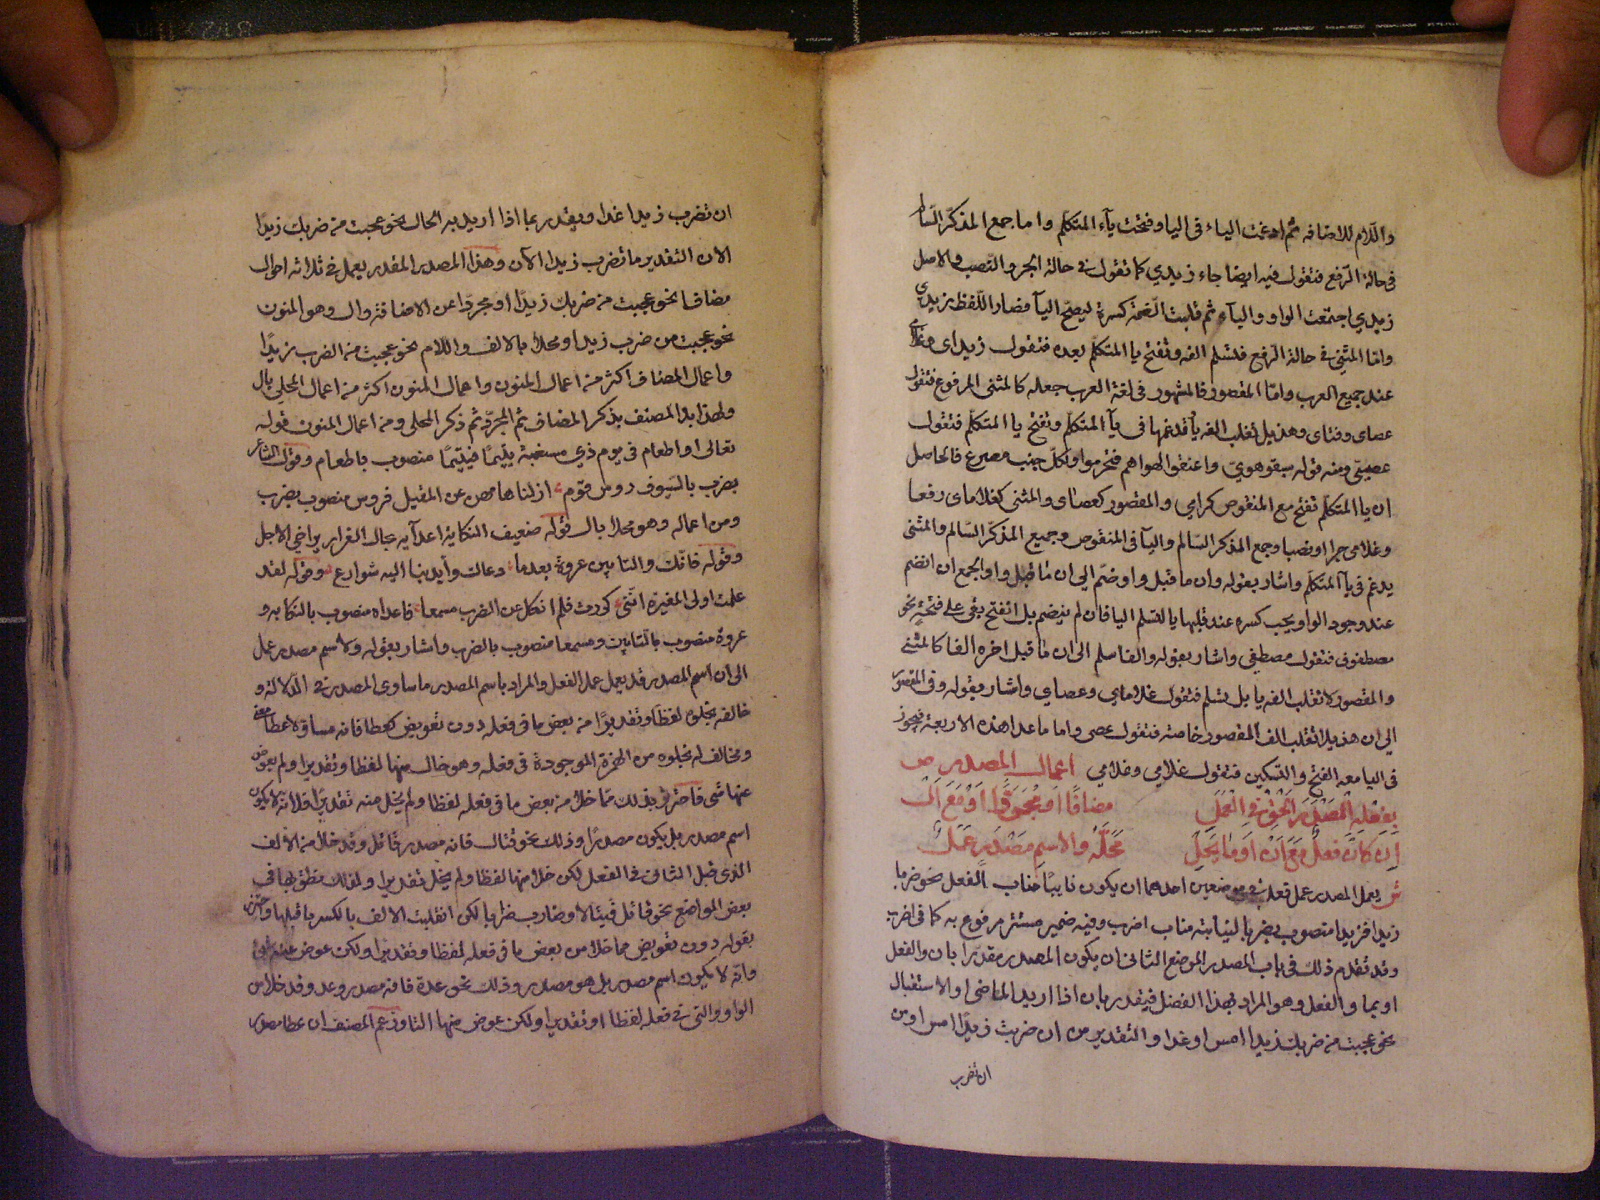 واللام للاضافه ثم ادغمت الياء فى الياء وفتحت ياء المتكلم واما جمع المذكر السالم
فى حالة الرفع فتقول فيه ايضا جاء زيدي كما تقول فى حالة الجر والنصب والاصل
زيدي اجتمعت الواو والياء ثم قلبت الضمة كسرة ليصح اليآ فصار اللفظ زيدي
واما المثنى فى حالة الرفع فتسلم الفه وتفتح يا المتكلم بعده فتقول زيداى وغلاماى
عند جميع العرب واما المقصور فالمشهور فى لغة العرب جعله كالمثنى المرفوع فتقول
عصاى وفتاى وهذيل تقلب الفه يآ تدغمها فى يآ المتكلم وتفتح يا المتكلم فتقول
عصيى ومنه قوله سبقو هوي واعنقوا لهواهم فتخرموا ولكل جنب مصرع فالحاصل
ان يا المتكلم تفتح مع المنقوص كرامي والمقصور كعصاى والمثنى كغلاماى رفعا
وغلامى جرا ونصبا وجمع المذكر السالم واليآ فى المنقوص وجميع المذكر السالم والمثنى
يدغم فى يآ المتكلم واشار بقوله وان ما قبل واو ضم الى ان ما قبل واو الجمع ان انضم
عند وجود الواو يجب كسره عند قلبها يا لتسلم اليا فان لم ينضم بل انفتح بقى على فتحة نحو
مصطفون فتقول مصطفى واشار بقوله والفا سلم الى ان ما قبل اخره الفا كالمثنى
والمقصور لا تقلب الفه يا بل تسلم فتقول غلاماى وعصاي واشار بقوله وفى المقصور
الى ان هذيلا تقلب الف المقصور خاصة فتقول عصى واما ما عدا هذه الاربعة فيجوز
فى اليا معه الفتح والتسكين فتقول غلامي وغلامي اعمال المصدر ص
بِفِعْلِهِ الْمَصْدَرَ اَلْحِقْ فِى الْعَمَلْ مضافًا اَوْ مُجَرَّدًا اَوْ مَعَ اَلْ
اِن كَانَ فعلٌ مَعَ اَن اَوْ مَا يَحُلْ مَحَلَّهُ والاسمِ مَصْدَرٍ عَمَلْ
ش يعمل المصدر عمل فعله فى موضعين احدهما ان يكون نايبا مناب الفعل نحو ضربا
زيدا فزيدا منصوب بضربا لنيابته مناب اضرب وفيه ضمير مستتر مرفوع به كما فى اضرب
وقد تقدم ذلك فى باب المصدر الموضع الثانى ان يكون المصدر مقدرا بان والفعل
او بما والفعل وهو المراد بهذا الفصل فيقدر بان اذا اريد الماضى او الاستقبال
نحو عجبت من ضربك زيدا امس او غدا والتقدير من ان ضربت زيدًا امس او من
ان تضرب
ان تضرب زيدا غدا ويقدر بما اذا اريد به الحال نحو عجبت من ضربك زيدًا
الان التقدير ما تضرب زيدا الآن وهذا المصدر المقدر يعمل فى ثلاثة احوال
مضافا نحو عجبت من ضربك زيدًا او مجردا عن الاضافة وال وهو المنون
نحو عجبت من ضرب زيدا او محلا بالالف واللام نحو عجبت من الضرب زيدًا
واعمال المضاف اكثر من اعمال المنون واعمال المنون اكثر من اعمال المحلى بال
ولهذا بدا المصنف بذكر المضاف ثم المجرد ثم ذكر المحلى ومن اعمال المنون قوله
تعالى او اطعام فى يوم ذي مسغبة يتيمًا فيتيمًا منصوب باطعام وقول الشاعر
بضرب بالسيوف روس قوم ازلنا هامهن عن المقيل فروس منصوب بضرب
ومن اعماله وهو محلا بال قوله ضعيف النكاية اعدآيه يخال الفرار يراخي الاجل
وقوله فانك والتابين عروة بعدما دعاك وأيدينا اليه شوارع وقوله لقد
علمت اولى المغيرة انني كررت فلم انكل عن الضرب مسمعا فاعداه منصوب بالنكايه و
عروة منصوب بالتابين ومسمعا منصوب بالضرب واشار بقوله ولاسم مصدر عمل
الى ان اسم المصدر قد يعمل عمل الفعل والمراد باسم المصدر ما ساوى المصدر فى الدلالة و
خالفه بخلوه لفظًا وتقديرًا من بعض ما فى فعله دون تعويض كعطا فانه مساو لاعطا معنى
ومخالف له بخلوه من الهمزة الموجودة فى فعله وهو خال منها لفظا وتقديرا ولم يعوض
عنها شى فاحترز بذلك مما خلا من بعض ما فى فعله لفظا ولم يخل منه تقديرا فلانه لا يكون
اسم مصدر بل يكون مصدرًا وذلك نحو قتال فانه مصدر قاتل وقد خلا من الالف
الذى قبل الثانى فى الفعل لكن خلا منها لفظا ولم يخل تقديرا ولذلك نطق بها فى
بعض المواضع نحو قاتل قيتالا وضارب ضيرابا لكن انقلبت الالف با لكسر ما قبلها واحترز
بقوله دون تعويض مما خلا من بعض ما فى فعله لفظا وتقديرا ولكن عوض عنه
وانه لا يكون اسم مصدر بل هو مصدر وذلك نحو عدة فانه مصدر وعد وقد خلا من
الواو والتى فى فعله لفظا او تقديرا ولكن عوض منها التا وزعم المصنف ان عطا مصدر